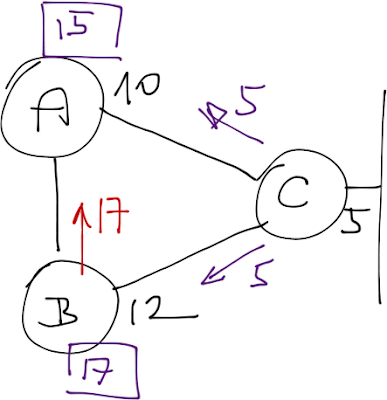 15
A 10
5
C
17
5
5
B 12
17